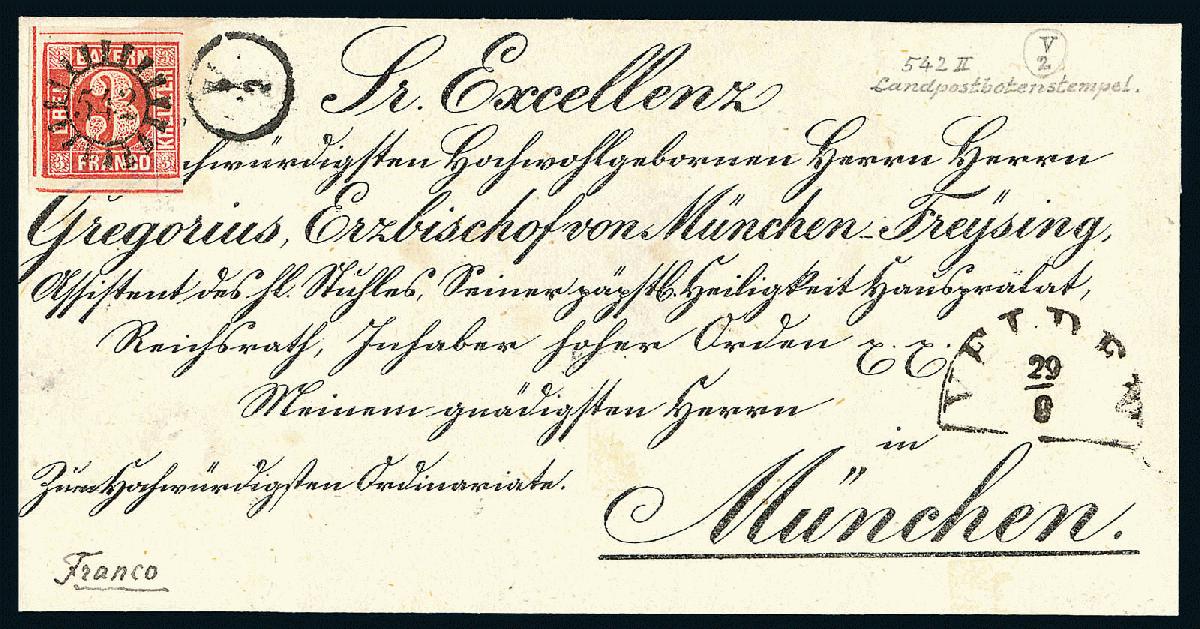 BAYERN
DREI
KREUZER
FRANCO
3
542
V
2
542 II
V
2
Landpostbotenstempel.
Sr. Excellenz
chwürdigsten Hochwohlgebornen Herrn Herrn
Gregorius, Erzbischof von München-Freÿsing,
Assistent des hl. Stuhles, Seiner päpstl. Heiligkeit Hausprälat,
Reichsrath, Inhaber hoher Orden
Meinem gnädigsten Herrn
VELDEN
29
8
in
München.
Zum Hochwürdigsten Ordinariate.
Franco